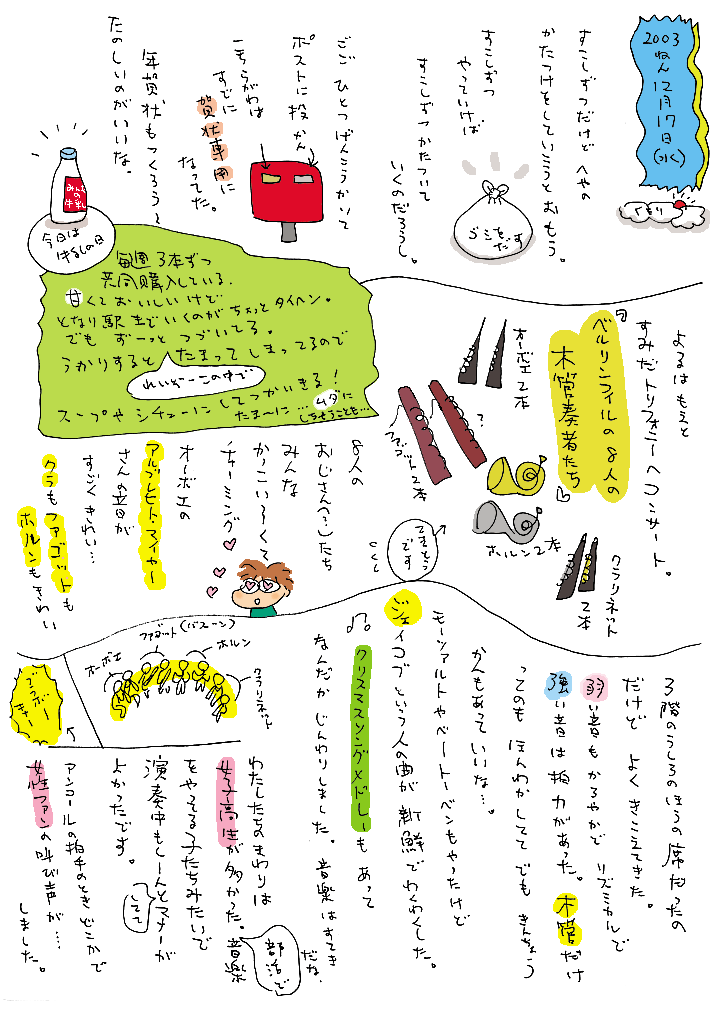 2003
ねん
12月
17日
(水)
くもり
すこしずつだけど へやの
かたつけをしていこうとおもう。
すこしずつ
やっていけば
すこしずつかたついて
いくのだろうし。
ゴミをだす
ごご ひとつげんこうかいて
ポストに投かん
すでに
賀状専用に
なってた。
年賀状もつくろう〜
たのしいのがいいな。
みんなの
牛乳
今日は
牛乳の日
毎週 3本ずつ
共同購入している。
甘くておいしいけど
となり駅までいくのがちょっとタイヘン。
でも ずーっと つづいてる。
うかりすると たまって しまってるので
れいぞーこの中で
スープや シチューに してつかいきる!
たま〜に…ムダに
しちゃうことも…
よるは もえと
すみだトリフォニーへコンサート。
「ベルリンフィルの 8人の
木管奏者たち」
オーボエ2本
?
ファゴット2本
ホルン2本
クラリネット
2本
てきとう
です
8人の
おじさん(?)たち
みんな
かっこい〜くて
チャーミング
オーボエの
アルブレヒト・マイヤー
さんの音が
すごくきれい…
クラもファゴットも
ホルンもきれい
3階のうしろのほうの席だったの
だけど よく きこえてきた。
弱い音もかろやかで リズミカルで
強い音は拍力があった。木管だけ
ってのも ほんわかしてて でも きんちょう
かんもあっていいな…。
モーツァルトやベートーベンもやったけど
ジェイコブという人の曲が 新鮮でわくわくした。
クリスマスソングメドレーもあって
なんだか じんわりしました。音楽はすてき
だな。
ファゴット(バスーン)
オーボエ
ホルン
クラリネット
ブラボー
キャー
わたしたちのまわりは
女子高生が多かった。音楽
部活で
をやってる子たちみたいで
演奏中もしーんとマナーが
してて
よかったです。
アンコールの拍手のとき どこかで
女性ファンの叫び声が…
しました。